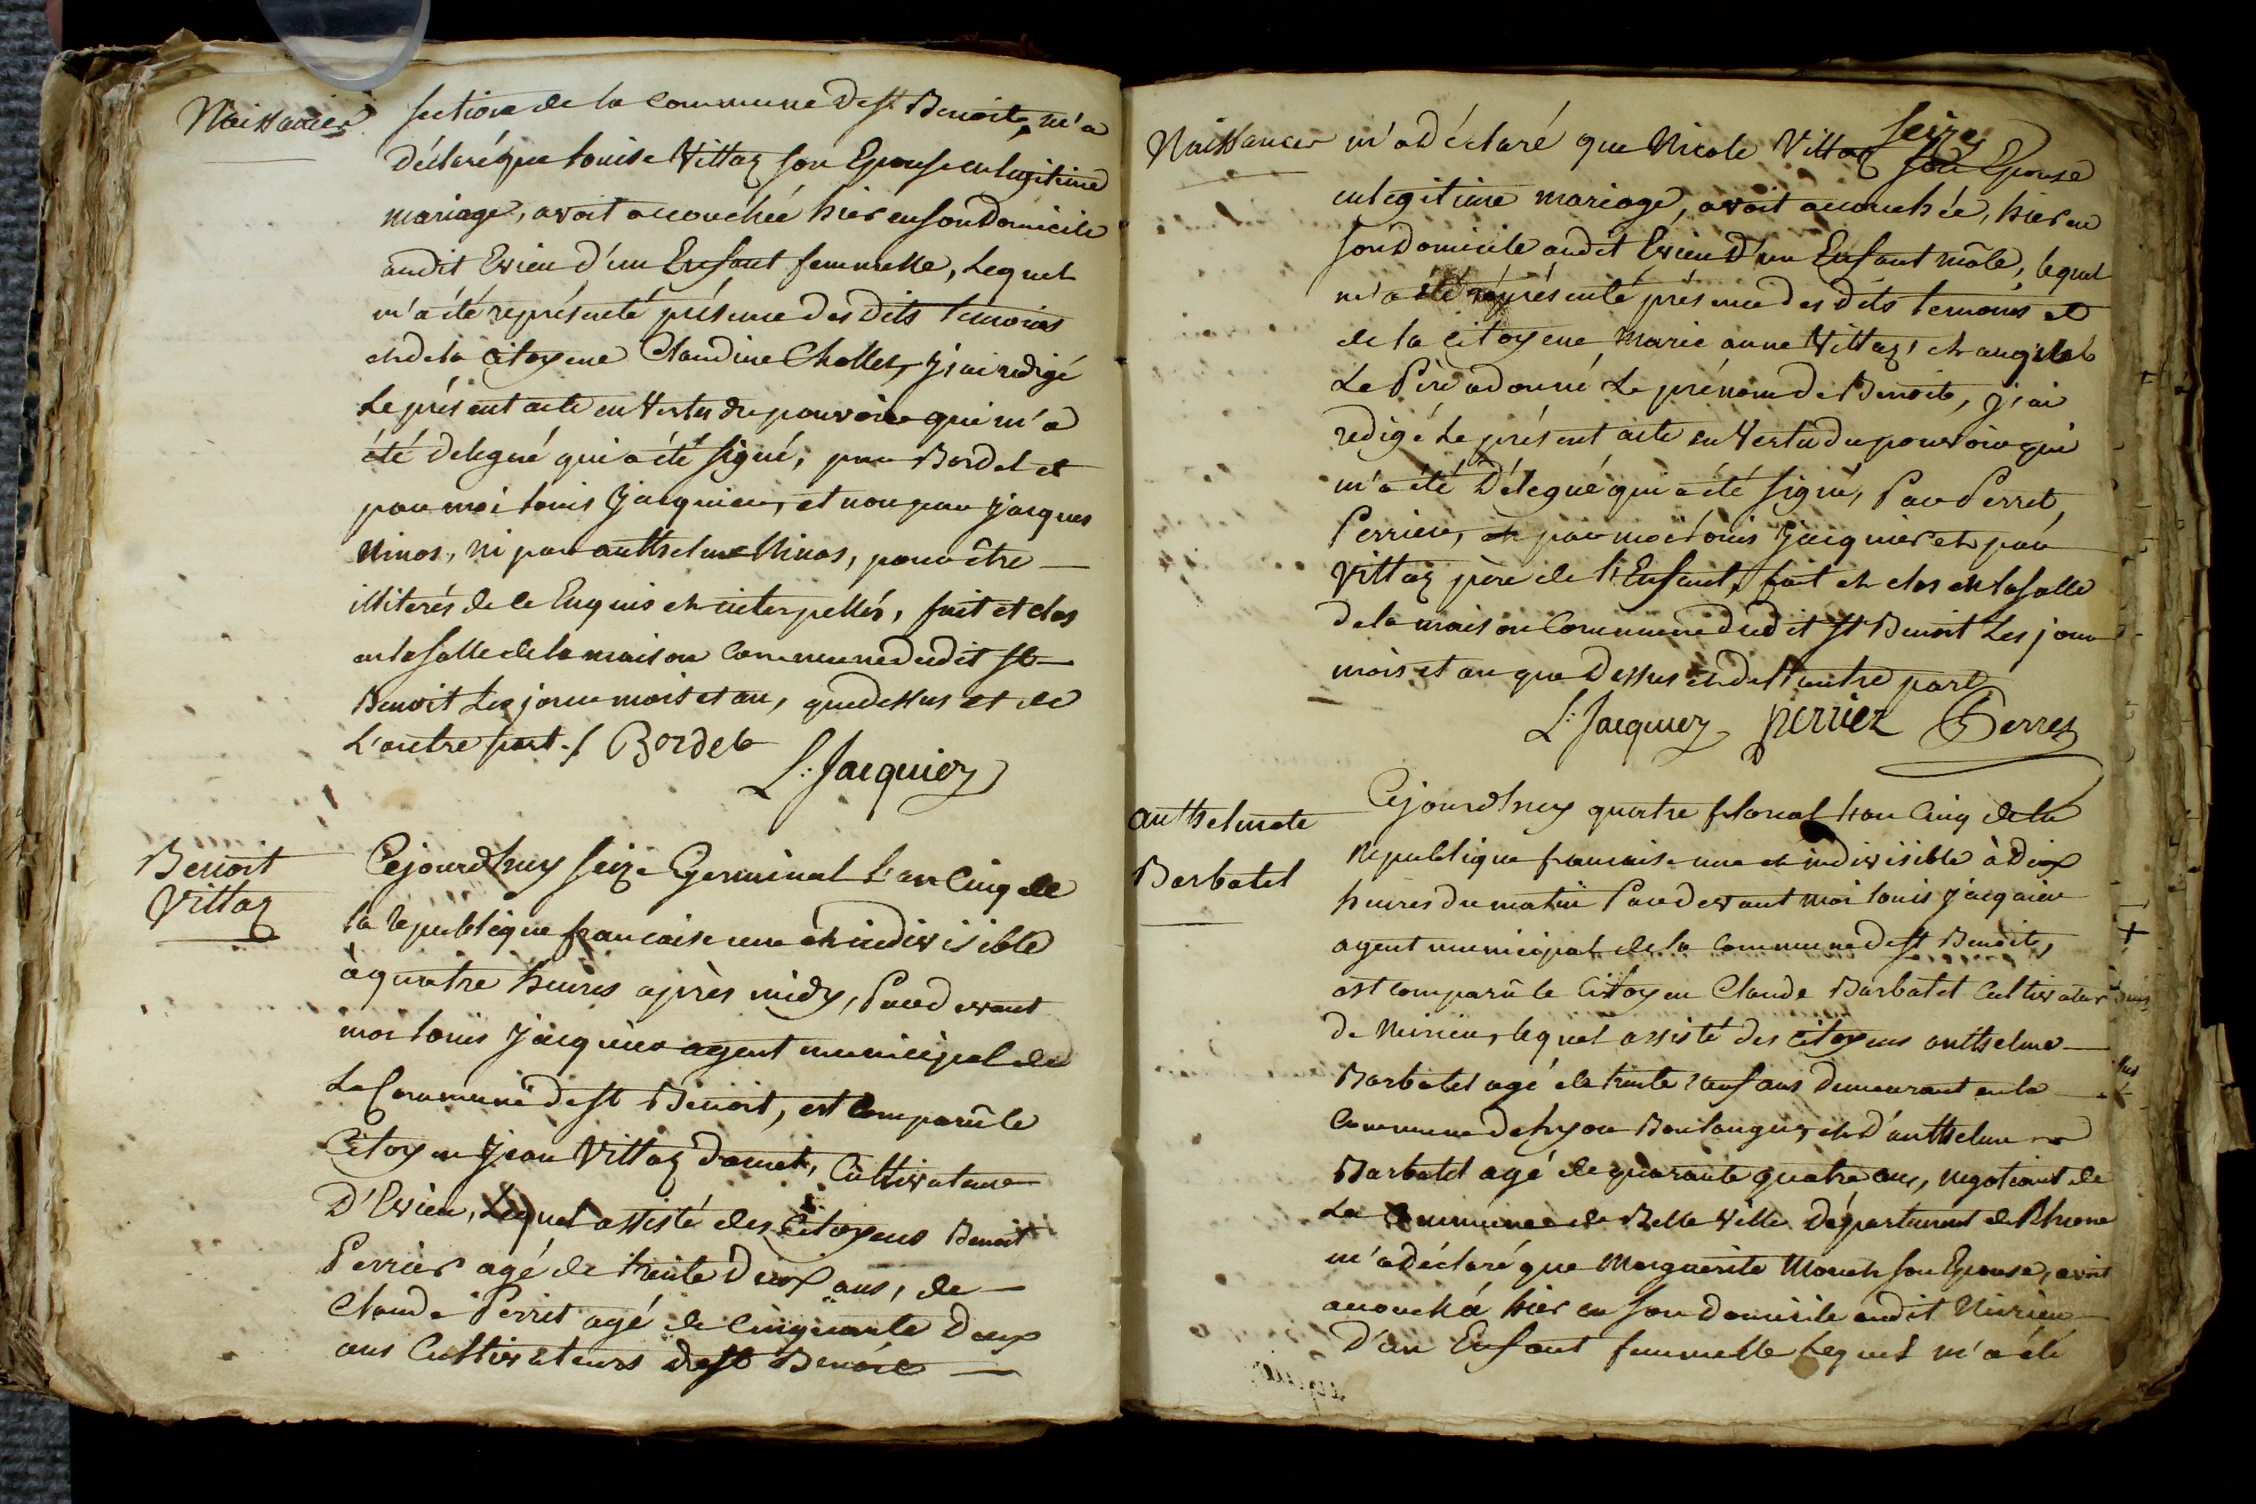 Naissances
section de la commune de st Benoit, m'a
déclaré que Louise Vittoz son Epouse en légitime
mariage, avoit accouchée hier en son domicile
audit Evieu d'un Enfant femmelle, Lequel
m'a été représenté présence des dits temoins
et de la citoyene Claudine Chollet, j'ai redigé
Le présent acte en vertu du pouvoir qui m'a
été délegué qui a été signé, par Bordel et
par moi Louis Jacquier, et non par Jacques
Ninos, ni par anthelme Ninos, pour être
illiterés de ce Enquis et interpellés, fait et clos
en la salle de la maison commune dudit st
Benoit Les jour mois et an, que dessus et de
L'autre part ./. Bordel
L: Jacquier
Benoit
Vittoz
Cejourdhuy seize Germinal L'an Cinq de
la republique francaise une et indivisible
à quatre heures après midy, Par devant
moi Louis Jacquier agent municipal de
La Commune de st Benoit, est Comparû le
Citoyen Jean Vittoz Cultivateur
D'Evieu, Lequel assisté des Citoyens Benoit
Perrier agé de trente Deux ans, de
Claude Perret agé de Cinquante Deux
ans Cultivateurs de st Benoit
seize
Naissances
m'a déclaré que Nicole Vittoz son Epouse
en legitime mariage, avoit accouchée, hier en
son domicile audit Evieu D'un Enfant mâle, lequel
m'a été représenté présence des dits temoins et
de la Citoyene Marie anne Vittoz, et auquel
Le Père a donné Le prénom de Benoit, j'ai
redigé Le présent acte en vertu du pouvoir qui
m'a été Délegué qui a été signé, Par Perret,
Perrier, et par moi Louis Jacquier et par
Vittoz père de l'Enfant, fait et clos en la salle
de la maison Commune dudit st Benoit Les jour
mois et an que Dessus et de l'autre part
L: Jacquier perrier Perret
anthelmete
Barbatel
Cejourdhuy quatre floreal L'an Cinq de la
Republique francaise une et indivisible à Dix
heures du matin Par devant moi Louis Jacquier
agent municipal de la Commune de st Benoit,
est comparû le Citoyen Claude Barbatel Cultivateur
de Nirieu, lequel assisté des citoyens anthelme
Barbatel agé de trente neuf ans demeurant en la
Commune de Lyon Boulanger, et D'anthelme
Barbatel agé de quarante quatre ans, negotiant de
La Commune de Belle ville Département du Rhone
m'a déclaré que Marguerite Mouch son Epouse, avoit
accouché hier en son domicile audit Nirieu
D'un Enfant femmelle Lequel m'a été